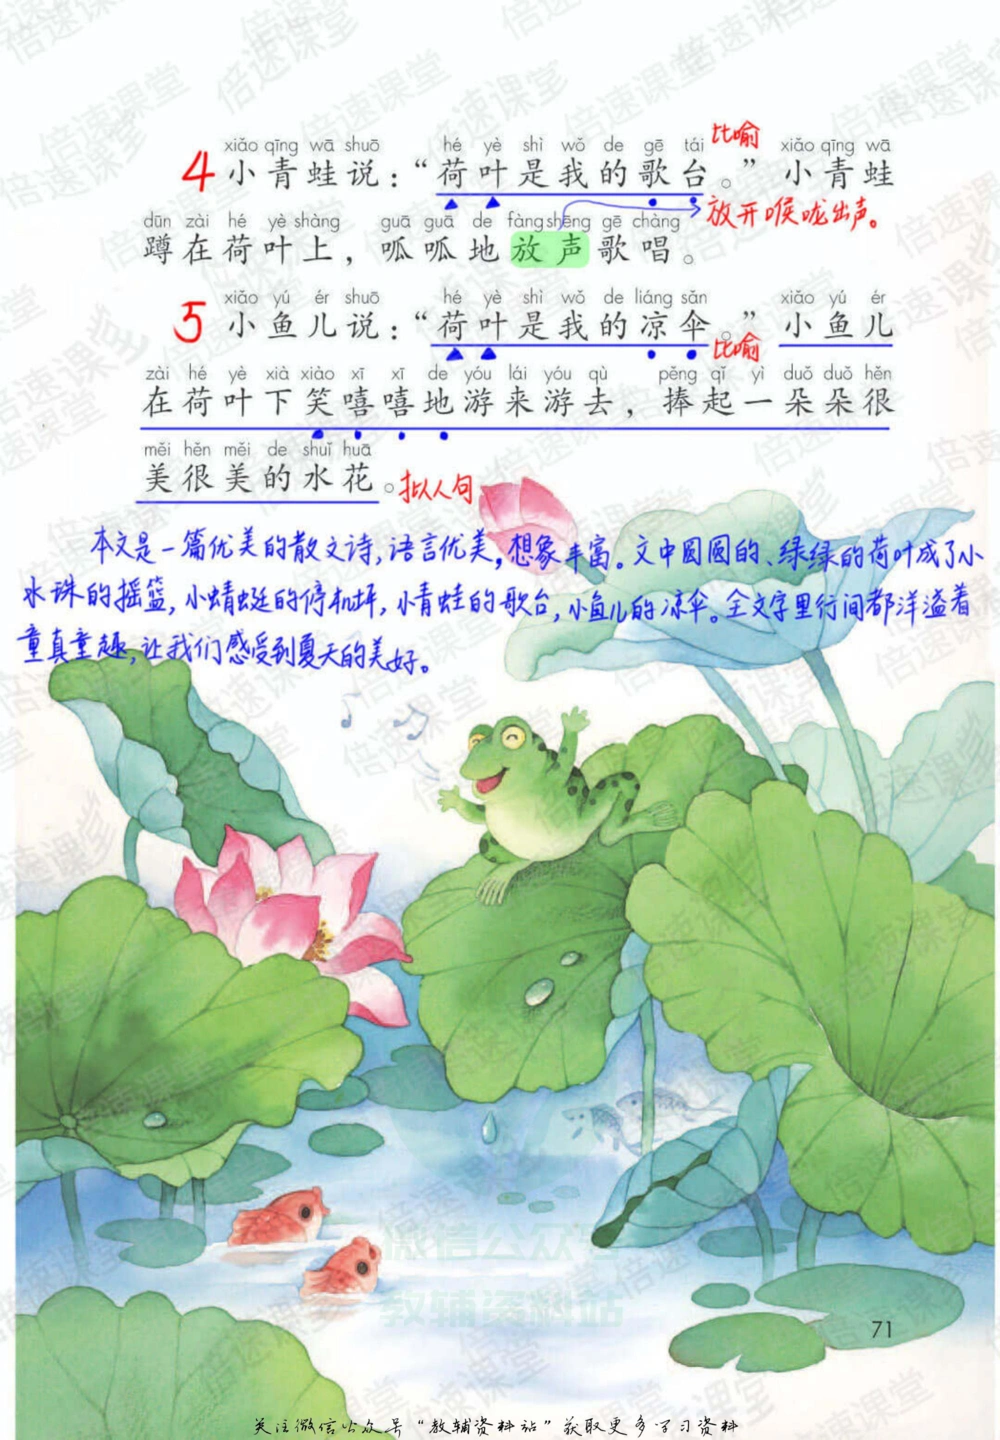 xiǎo qīng wā shuō hé yè shì wǒ de gē tái 比喻 xiǎo qīng wā
4 小青蛙说：“荷叶是我的歌台。”小青蛙
放开喉咙出声。
dūn zài hé yè shàng guā guā de fàng shēng gē chàng
蹲在荷叶上，呱呱地放声歌唱。
xiǎo yú ér shuō hé yè shì wǒ de liáng sǎn xiǎo yú ér
5 小鱼儿说：“荷叶是我的凉伞。”小鱼儿
比喻
zài hé yè xià xiào xī xī de yóu lái yóu qù pěng qǐ yì duǒ duǒ hěn
在荷叶下笑嘻嘻地游来游去，捧起一朵朵很
měi hěn měi de shuǐ huā
美很美的水花。拟人句
本文是一篇优美的散文诗，语言优美，想象丰富。文中圆圆的、绿绿的荷叶成了小
水珠的摇篮，小蜻蜓的停机坪，小青蛙的歌台，小鱼儿的凉伞。全文字里行间都洋溢着
童真童趣，让我们感受到夏天的美好。
微信公众号
教辅资料站
71
关注微信公众号“教辅资料站”获取更多学习资料
倍速课堂